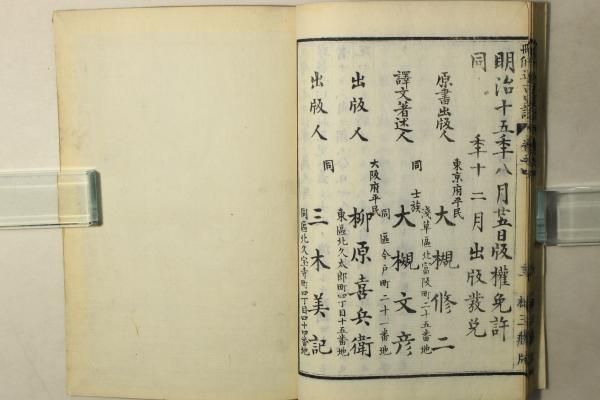 明治十五年八月廿五日版權免許
同　年十二月出版發兌
原書出版人　東京府平民　大槻修二
淺草區北富坂町二十五番地
譯文著述人　同　士族　大槻文彦
同區今戸町二十一番地
出版人　大阪府平民　柳原喜兵衛
東區北久太郎町四丁目十五番地
出版人　同　三木美記
同區北久宝寺町四丁目四十四番地
三